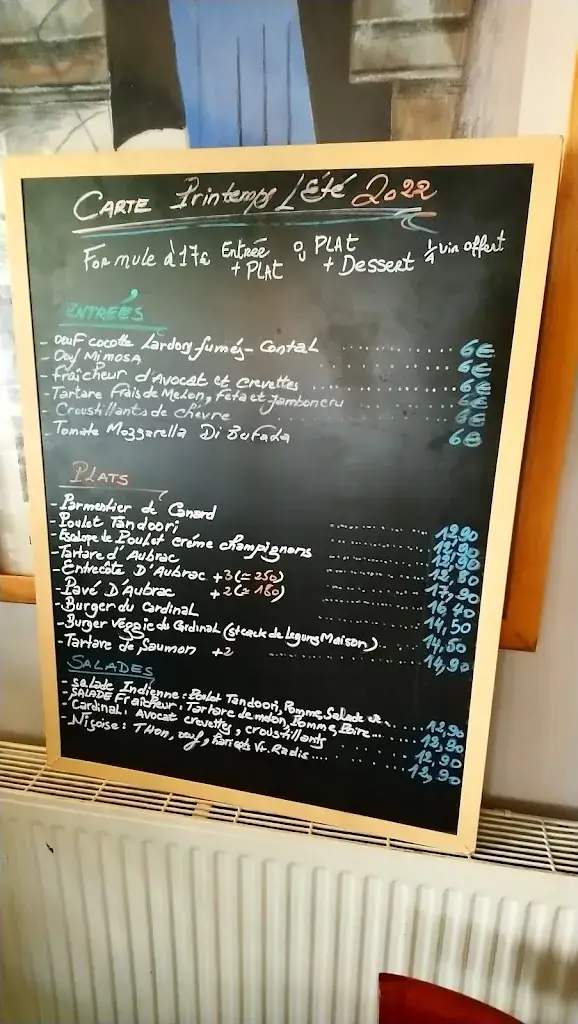 CARTE Printemps L'Été 2022
Formule à 17€ Entrée + PLAT ou PLAT + Dessert 1/4 vin offert
ENTREÉS
- Oeuf cocotte Lardons fumés - Cantal ........... 6€
- Oeuf Mimosa ........... 6€
- Fraîcheur d'Avocat et crevettes ........... 6€
- Tartare Frais de Melon, Feta et Jambon cru ........... 6€
- Croustillants de chèvre ........... 6€
- Tomate Mozzarella Di Bufada 6€
PLATS
- Parmentier de Canard
- Poulet Tandoori ........... 12,90
- Escalope de Poulet crème champignons ........... 12,90
- Tartare d'Aubrac ........... 12,90
- Entrecôte D'Aubrac +3 (=250) ........... 17,90
- Pavé D'Aubrac +2 (=180) ........... 16,40
- Burger du Cardinal ........... 14,50
- Burger Veggie du Cardinal (steack de Legums Maison) ........... 14,50
- Tartare de Saumon +2 ........... 14,90
SALADES
- salade Indienne : Poulet Tandoori, Pomme, Salade ... 12,90
- SALADE Fraîcheur : Tartare de melon, Pomme, Poire... 12,90
- Cardinal : Avocat crevettes, croustillants ........... 12,90
- Niçoise : Thon, oeuf, Radis .... 12,90